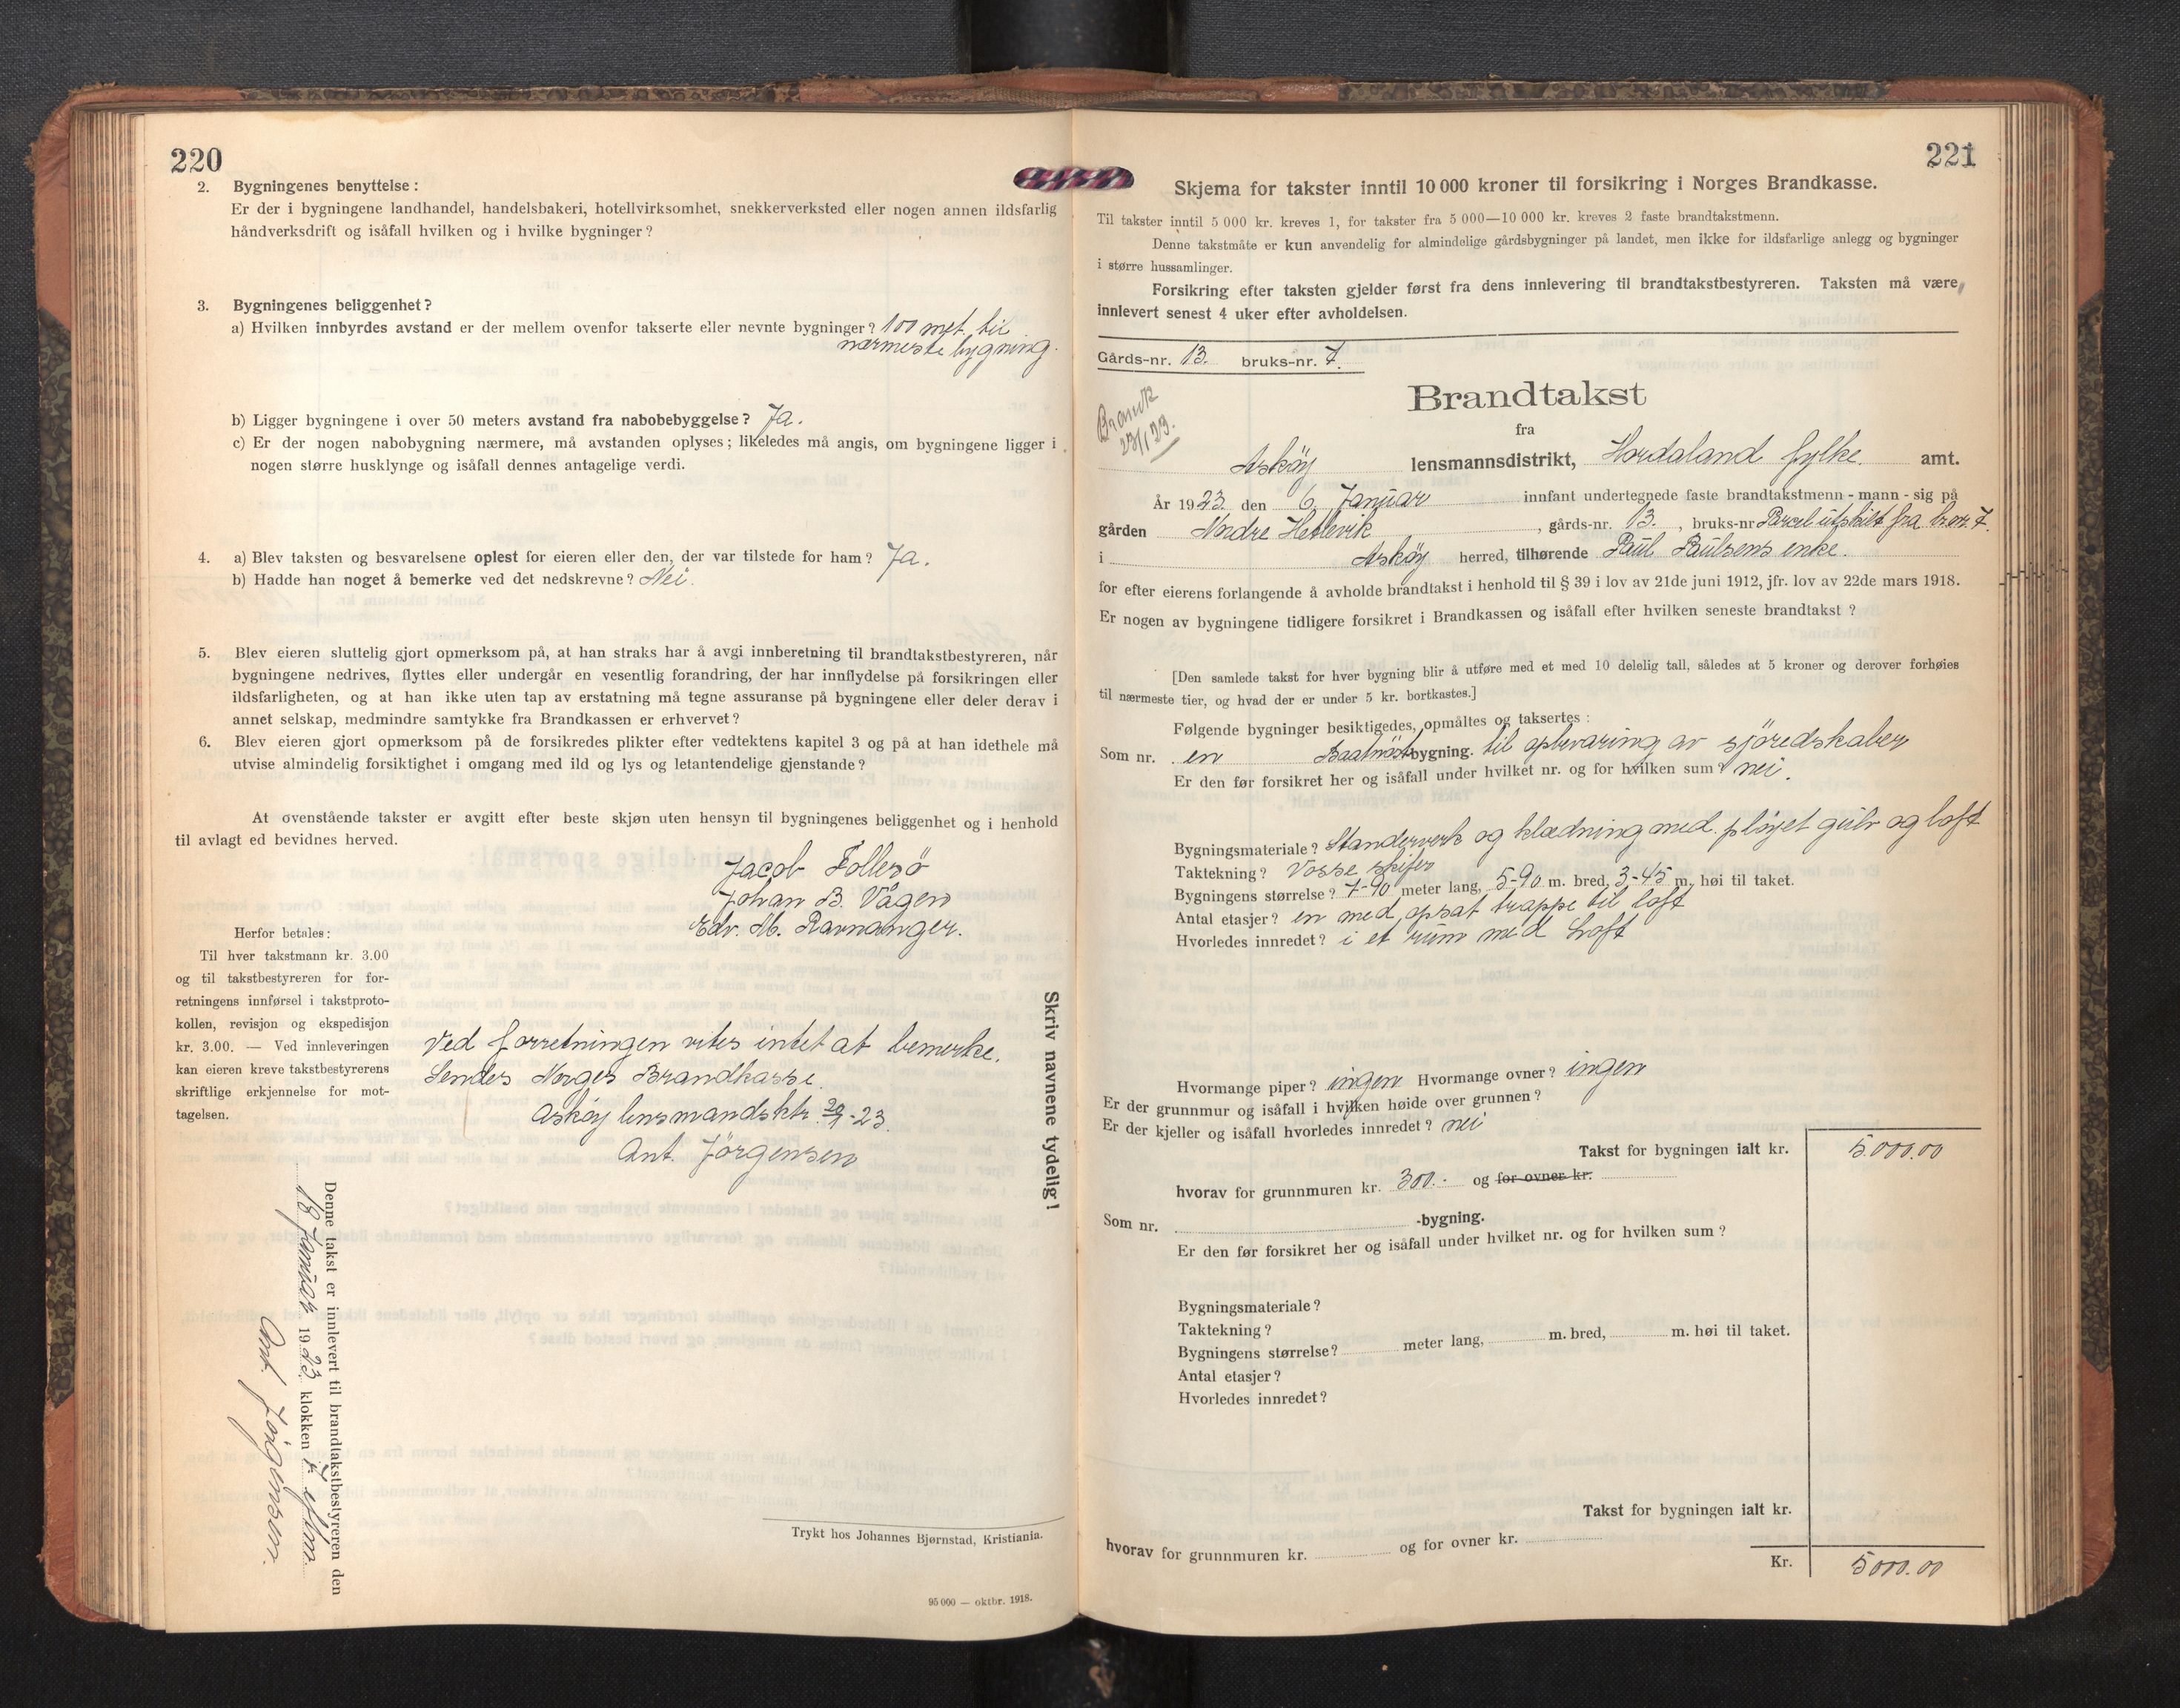 220
2. Bygningenes benyttelse:
Er der i bygningene landhandel, handelsbakeri, hotellvirksomhet, snekkerverksted eller nogen annen ildsfarlig
håndverksdrift og isåfall hvilken og i hvilke bygninger?
3. Bygningenes beliggenhet?
a) Hvilken innbyrdes avstand er der mellem ovenfor takserte eller nevnte bygninger? 100 met. til
nærmeste bygning.
b) Ligger bygningene i over 50 meters avstand fra nabobebyggelse? Ja.
c) Er der nogen nabobygning nærmere, må avstanden oplyses; likeledes må angis, om bygningene ligger i
nogen større husklynge og isåfall dennes antagelige verdi.
4. a) Blev taksten og besvarelsene oplest for eieren eller den, der var tilstede for ham? Ja.
b) Hadde han noget å bemerke ved det nedskrevne? Nei.
5. Blev eieren sluttelig gjort opmerksom på, at han straks har å avgi innberetning til brandtakstbestyreren, når
bygningene nedrives, flyttes eller undergår en vesentlig forandring, der har innflydelse på forsikringen eller
ildsfarligheten, og at han ikke uten tap av erstatning må tegne assuranse på bygningene eller deler derav i
annet selskap, medmindre samtykke fra Brandkassen er erhvervet?
6. Blev eieren gjort opmerksom på de forsikredes plikter efter vedtektens kapitel 3 og på at han idethele må
utvise almindelig forsiktighet i omgang med ild og lys og letantendelige gjenstande?
At ovenstående takster er avgitt efter beste skjøn uten hensyn til bygningenes beliggenhet og i henhold
til avlagt ed bevidnes herved.
Jacob Follesö
Johan B. Vågen
Edv. M. Ravnanger.
Herfor betales:
Til hver takstmann kr. 3.00
og til takstbestyreren for for-
retningens innførsel i takstproto-
kollen, revisjon og ekspedisjon
kr. 3.00. — Ved innleveringen
kan eieren kreve takstbestyrerens
skriftlige erkjennelse for mot-
tagelsen.
Ved forretningen vites intet at bemerke.
Sendes Norges Brandkasse.
Asköy lensmandsktr. 20/1-23.
Ant. Jörgensen
Skriv navnene tydelig!
Denne takst er innlevert til brandtakstbestyreren den
18 Januar 1923 klokken 7 eftm.
Ant. Jörgensen.
Trykt hos Johannes Bjørnstad, Kristiania.
95 000 — oktbr. 1918.
221
Skjema for takster inntil 10 000 kroner til forsikring i Norges Brandkasse.
Til takster inntil 5 000 kr. kreves 1, for takster fra 5 000—10 000 kr. kreves 2 faste brandtakstmenn.
Denne takstmåte er kun anvendelig for almindelige gårdsbygninger på landet, men ikke for ildsfarlige anlegg og bygninger
i større hussamlinger.
Forsikring efter taksten gjelder først fra dens innlevering til brandtakstbestyreren. Taksten må være
innlevert senest 4 uker efter avholdelsen.
Gårds-nr. 13. bruks-nr. 7.
Brandtakst
23/1 23.
fra
Asköy lensmannsdistrikt, Hordaland fylke. amt.
År 1923 den 6. Januar innfant undertegnede faste brandtakstmenn - mann - sig på
gården Nordre Hetlevik, gårds-nr. 13., bruks-nr Parcel utskilt fra br.nr. 7.
i Asköy herred, tilhørende Paul Paulsens enke.
for efter eierens forlangende å avholde brandtakst i henhold til § 39 i lov av 21de juni 1912, jfr. lov av 22de mars 1918.
Er nogen av bygningene tidligere forsikret i Brandkassen og isåfall efter hvilken seneste brandtakst?
[Den samlede takst for hver bygning blir å utføre med et med 10 delelig tall, således at 5 kroner og derover forhøies
til nærmeste tier, og hvad der er under 5 kr. bortkastes.]
Følgende bygninger besiktigedes, opmåltes og taksertes:
Som nr. en Baatnöst bygning. til opbevaring av sjöredskaber
Er den før forsikret her og isåfall under hvilket nr. og for hvilken sum? nei.
Bygningsmateriale? Standerverk og klædning med plöyet gulv og loft
Taktekning? Vosse skifer
Bygningens størrelse? 7-90 meter lang, 5-90 m. bred, 3-45 m. høi til taket.
Antal etasjer? en med opsat trappe til loft
Hvorledes innredet? i et rum med Loft
Hvormange piper? ingen Hvormange ovner? ingen
Er der grunnmur og isåfall i hvilken høide over grunnen?
Er der kjeller og isåfall hvorledes innredet? nei
Takst for bygningen ialt kr. 5.000.00
hvorav for grunnmuren kr. 300.- og for ovner kr.
Som nr. -bygning.
Er den før forsikret her og isåfall under hvilket nr. og for hvilken sum?
Bygningsmateriale?
Taktekning?
Bygningens størrelse? meter lang, m. bred, m. høi til taket.
Antal etasjer?
Hvorledes innredet?
Takst for bygningen ialt kr.
hvorav for grunnmuren kr. og for ovner kr.
Kr. 5000.00